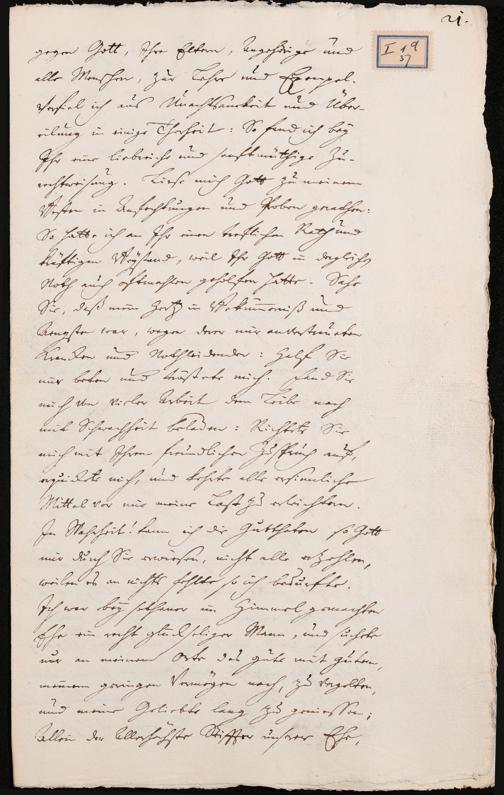 21.
I 19
37
gegen Gott, Ihre Eltern, Angehörige und
alle Menschen, zur Lehre und Exempel.
Verfiel ich aus Unachtsamkeit und Über-
eilung in einige Thorheit: So fand ich bey
Ihr eine liebreiche und sanftmüthige Zu-
rechtweisung. Liese mich Gott zu meinem
Besten in Anfechtungen und Proben gerathen:
So hatte ich an Ihr einen trostlichen Rath und
kräftigen Beystand, weil Ihr Gott in dergleichen
Noth auch oftmahlen geholfen hatte. Sahe
Sie, daß mein Hertz in Bekümmerniß und
Aengsten war, wegen derer mir anvertrauten
Krancken und Nothleidenden: Half Sie
mir beten und tröstete mich. Fand Sie
mich von vieler Arbeit dem Leibe nach
mit Schwachheit beladen: Richtete Sie
mich mit Ihrem freundlichen Zuspruch auf,
erquickete mich, und kehrte alle ersinnliche
Mittel vor mir meine Last zu erleichtern.
In Wahrheit! kann ich die Gutthaten so Gott
mir durch Sie erwiesen, nicht alle erzehlen,
weilen es an nichts fehlte so ich bedurfte.
Ich war bey solchener im Himmel gemachten
Ehe ein recht glückseliger Mann, und suchte
nur an meinem Orte das gute mit gutem,
meinem geringen Vermögen nach, zu vergelten,
und meine Geliebte lang zu geniessen;
Allein der Allerhöchste Stiffter unserer Ehe,